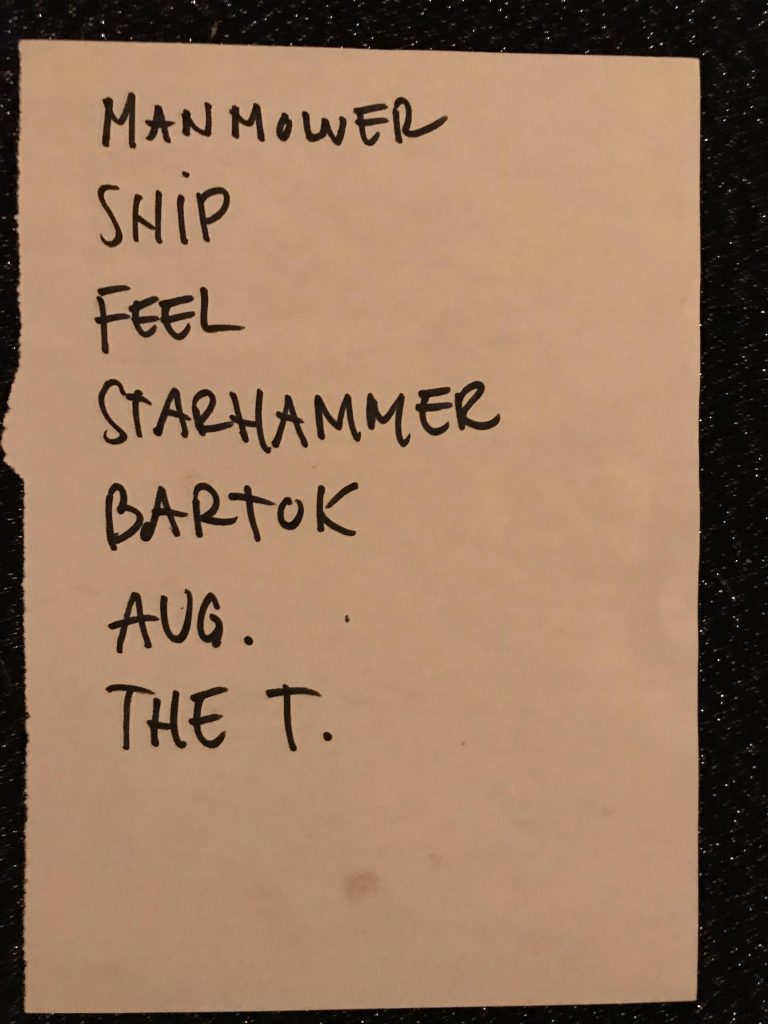 MANMOWER
SHIP
FEEL
STARHAMMER
BARTOK
AUG.
THE T.